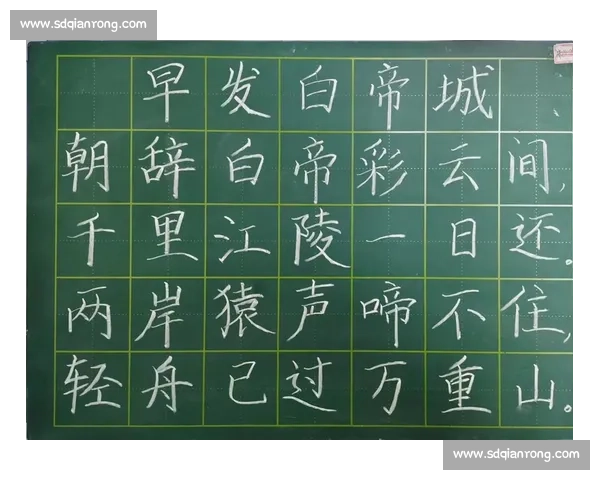 www.sdqianrong.com
早发白帝城
朝辞白帝彩云间,
千里江陵一日还。
两岸猿声啼不住,
轻舟已过万重山。
www.sdqianrong.com